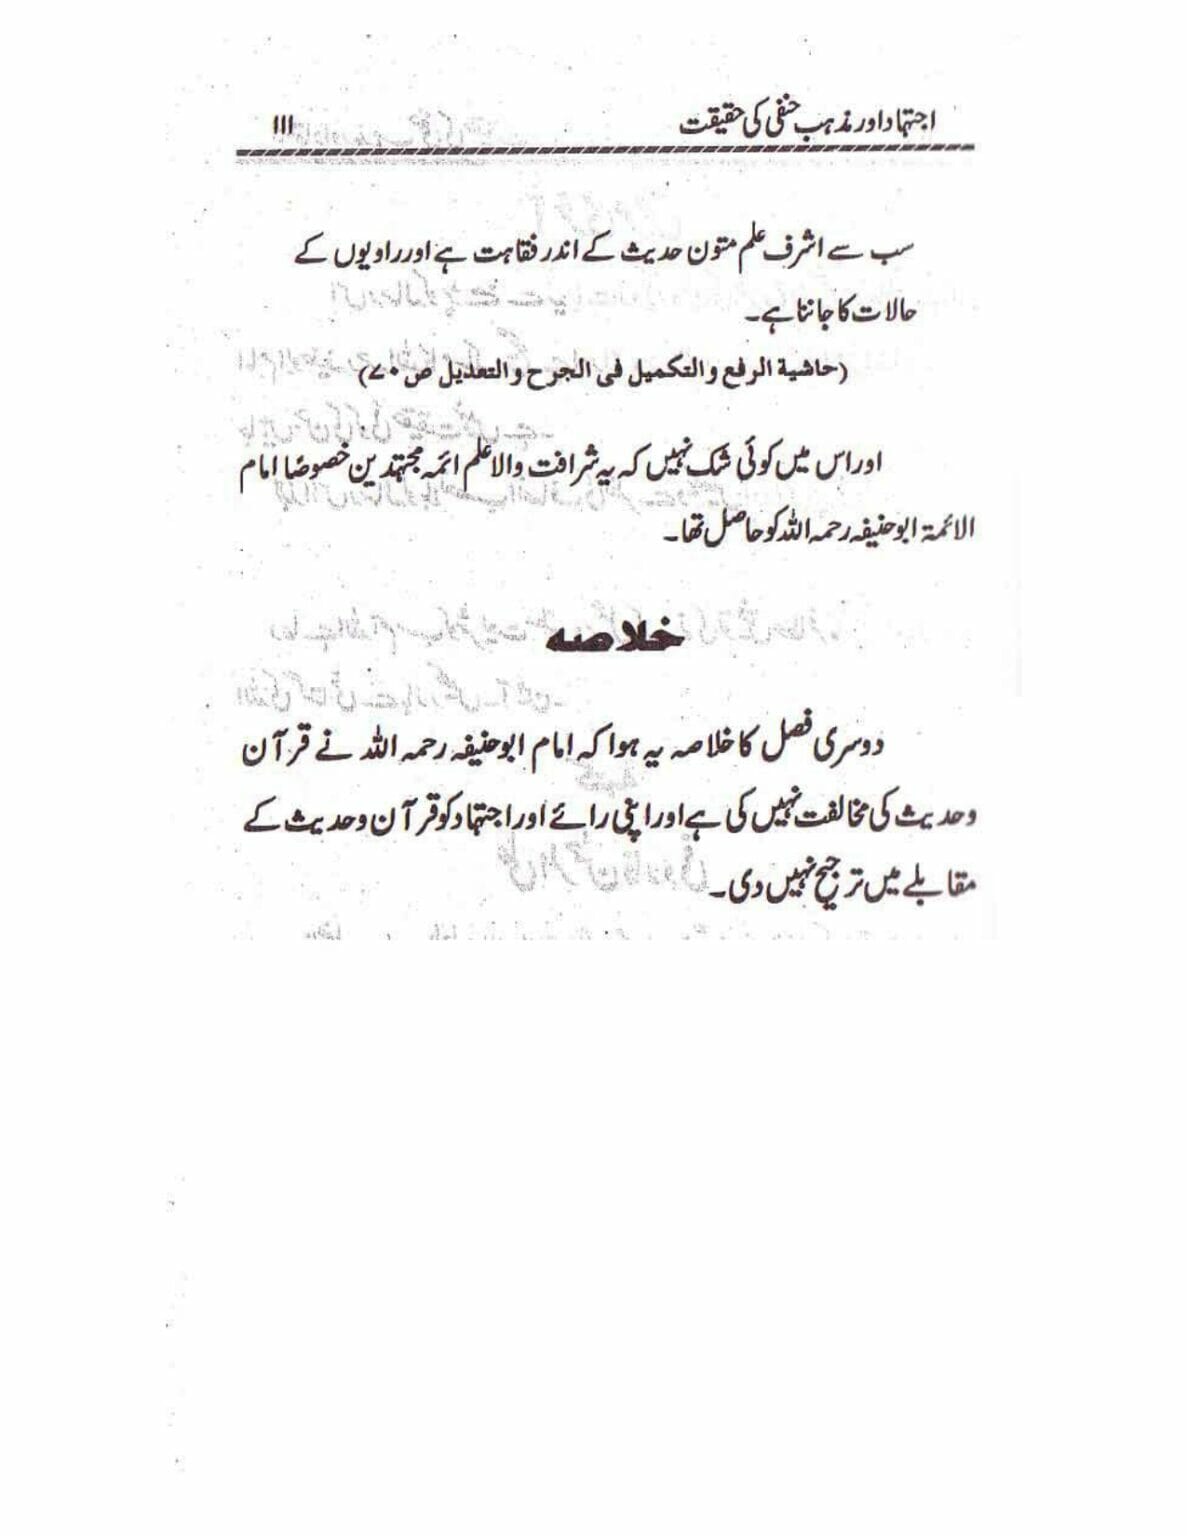 اجتہاد اور مذہب حنفی کی حقیقت ۱۱۱
سب سے اشرف علم متون حدیث کے اندر فقاہت ہے اور راویوں کے
حالات کا جاننا ہے۔
(حاشیة الرفع والتکمیل فی الجرح والتعدیل ص ۷۰)
اور اس میں کوئی شک نہیں کہ یہ شرافت والا علم ائمہ مجتہدین خصوصًا امام
الائمۃ ابوحنیفہ رحمہ اللہ کو حاصل تھا۔
خلاصه
دوسری فصل کا خلاصہ یہ ہوا کہ امام ابوحنیفہ رحمہ اللہ نے قرآن
وحدیث کی مخالفت نہیں کی ہے اور اپنی رائے اور اجتہاد کو قرآن وحدیث کے
مقابلے میں ترجیح نہیں دی۔